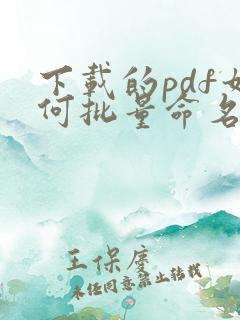 下载的pdf如
何批量命名
王保虔
未经同意禁止转载